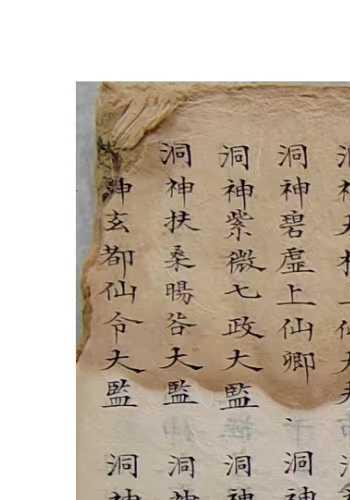 洞神碧虛上仙卿 洞神
洞神紫微七政大監 洞神
洞神扶桑暘谷大監 洞神
神玄都仙令大監 洞神